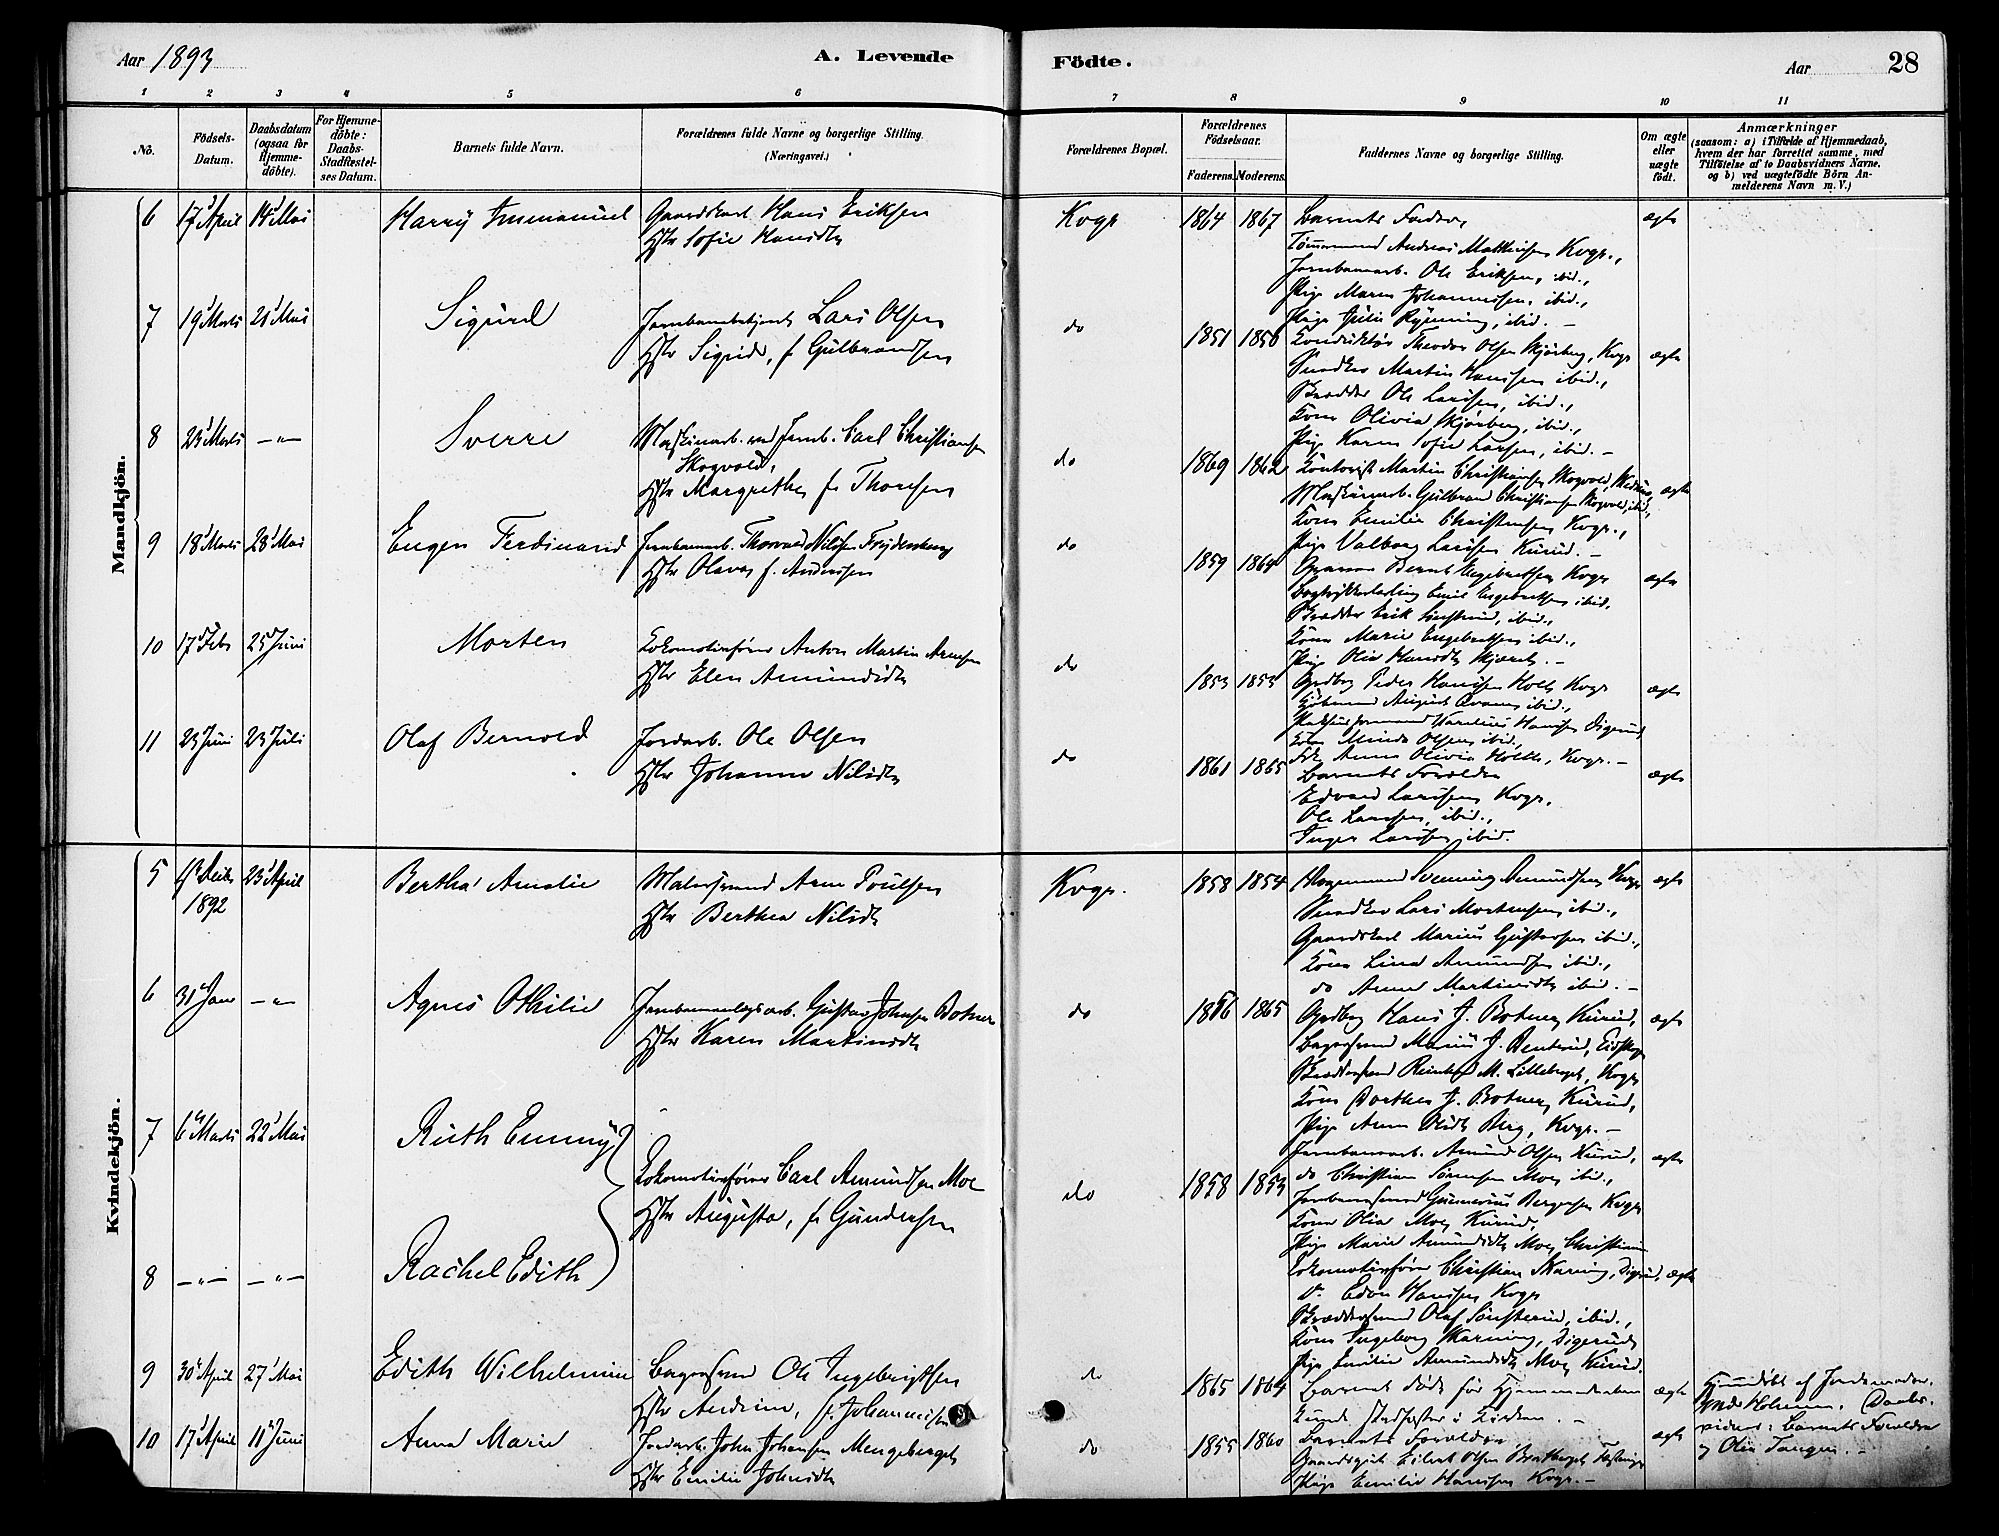 Aar 1893
A. Levende
Födte.
Aar
28
1 2 3 4 5 6 7 8 9 10 11
No.
Födsels-
Datum.
Daabsdatum
(ogsaa for
Hjemme-
döbte).
For Hjemme-
döbte:
Daabs-
Stadfæstel-
ses Datum.
Barnets fulde Navn.
Forældrenes fulde Navne og borgerlige Stilling.
(Næringsvei.)
Forældrenes Bopæl.
Forældrenes
Födselsaar.
Faderens. Moderens.
Faddernes Navne og borgerlige Stilling.
Om ægte
eller
uægte
födt.
Anmærkninger
(saasom: a) i Tilfælde af Hjemmedaab,
hvem der har forrettet samme, med
Tilföielse af to Daabsvidners Navne,
og b) ved uægtefödte Börn An-
melderens Navn m. V.)
Mandkjön.
6 17 April 14 Mai Harry Immanuel Gaardskarl Hans Eriksen
Hstr Sofie Hansdtr
Kvgr 1864 1867 Barnets Fader,
ægte
Tömmermand Andreas Matthisen Kvgr.,
Jernbanearb. Ole Eriksen, ibid.,
Pige Maren Johannessen, ibid.,
Pige Julie Rynning, ibid. —
7 19 Marts 21 Mai Sigurd Jernbanebetjent Lars Olsen
Hstr Sigrid, f. Gulbrandsen
do 1851 1856 Konduktör Theodor Olsen Skjörberg, Kvgr
ægte
Snedker Martin Hansen ibid.,
Skrædder Ole Larsen, ibid.,
Kone Olivia Skjörberg, ibid.,
Pige Karen Sofie Larsen, ibid. —
8 23 Marts —"— Sverre Maskinarb. ved Jernb. Carl Christiansen
Skogvold,
Hstr Margrethe f. Thoresen
do 1869 1862 Kontorist Martin Christiansen Skogvold,
ægte
Maskinarb. Gulbrand Christiansen Skogvold, ibid.,
Kone Emilie Christensen Kvgr.,
Pige Valborg Larsen Kurud. —
9 18 Marts 28 Mai Eugen Ferdinand Jernbanearb. Thorvald Nilsen Frydenberg
Hstr Olava f. Andersen
do 1859 1864 Bernt Engebretsen Kvgr
ægte
Emil Engebretsen ibid.
Skrædder Erik Sönsterud, ibid.,
Kone Marie Engebretsen ibid.,
Pige Olia Hansdtr —
10 17 Febr 25 Juni Morten Lokomotivförer Anton Martin Arnesen
Hstr Elen Amundsdtr
do 1853 1853 Grdbrg Peder Hansen Holth Kvgr
ægte
Kjöbmand August ibid.,
Karelius Hansen Digerud
Kone Minda Olsen ibid.,
Anne Olivia Holth, Kvgr. —
11 23 Juni 23 Juli Olaf Bernold Jordarb. Ole Olsen
Hstr Johanne Nilsdtr
do 1861 1865 Barnets Forældre
ægte
Edvard Larsen Kvgr,
Ole Larsen, ibid.,
Inger Larsen, ibid.
Kvindekjön.
5 23 April
1892
Bertha Amalie Malersvend Arne Poulsen
Hstr Berthea Nilsdtr
Kvgr. 1858 1854 Svenning Amundsen, Kvgr
ægte
Snedker Lars Mortensen, ibid.,
Gaardskarl Marius Gustavsen ibid.,
Kone Lina Amundsen ibid.,
do Anne Martinsdtr ibid. —
6 31 Janr —"— Agnes Othilie Jernbaneanlægsarb. Gustav Johnsen Botner
Hstr Karen Martinsdtr
do 1866 1865 Grdbrg Hans J. Botner, Kurud,
ægte
Bagersvend Marius J. Benterud, Eidskog
Skræddersvend Reinhard M. Lilleberget, Kvgr
Kone Dorthea J. Botner, Kurud,
Pige Anne Olsdtr Berg, Kvgr. —
7 6 Marts 22 Mai Ruth Emmy
Lokomotivförer Carl Amundsen Moe
Hstr Augusta, f. Gundersen
do 1858 1853
Jernbanearb. Amund Olsen Kurud,
ægte
do Christian Sörensen Moe, ibid.,
Gunnerius Bergersen Kvgr
Kone Olia Moe, Kurud,
Pige Marie Amundsdtr Moe, Christiania
8 —"— —"— Rachel Edith
Lokomotivförer Christian Skarning, Digerud, ægte
Edvin Hansen Kvgr
Skræddersvend Olaf Sönsterud, ibid.,
Kone Ingeborg Skarning, Digerud,
Pige Emilie Amundsdtr Moe, Kurud.
9 30 April 27 Mai Edith Wilhelmine Bagersvend Ole Ingebrigtsen
Hstr Andrine, f. Johannesen
do 1865 1864 Barnet döde för Hjemmedaaben
ægte
kunde stadfæstes i Kirken. —
Hjemmedöbt af Jordemoder
Holmen. Daabs-
vidner: Barnets Forældre
og Olia Tangen. —
10 17 April 11 Juni Anna Marie Jordarb. John Johansen Mengeberget
Hstr Emilie Johnsdtr
do 1855 1860 Barnets Forældre
ægte
Eilert Olsen
Pige Emilie Hansen Kvgr. —